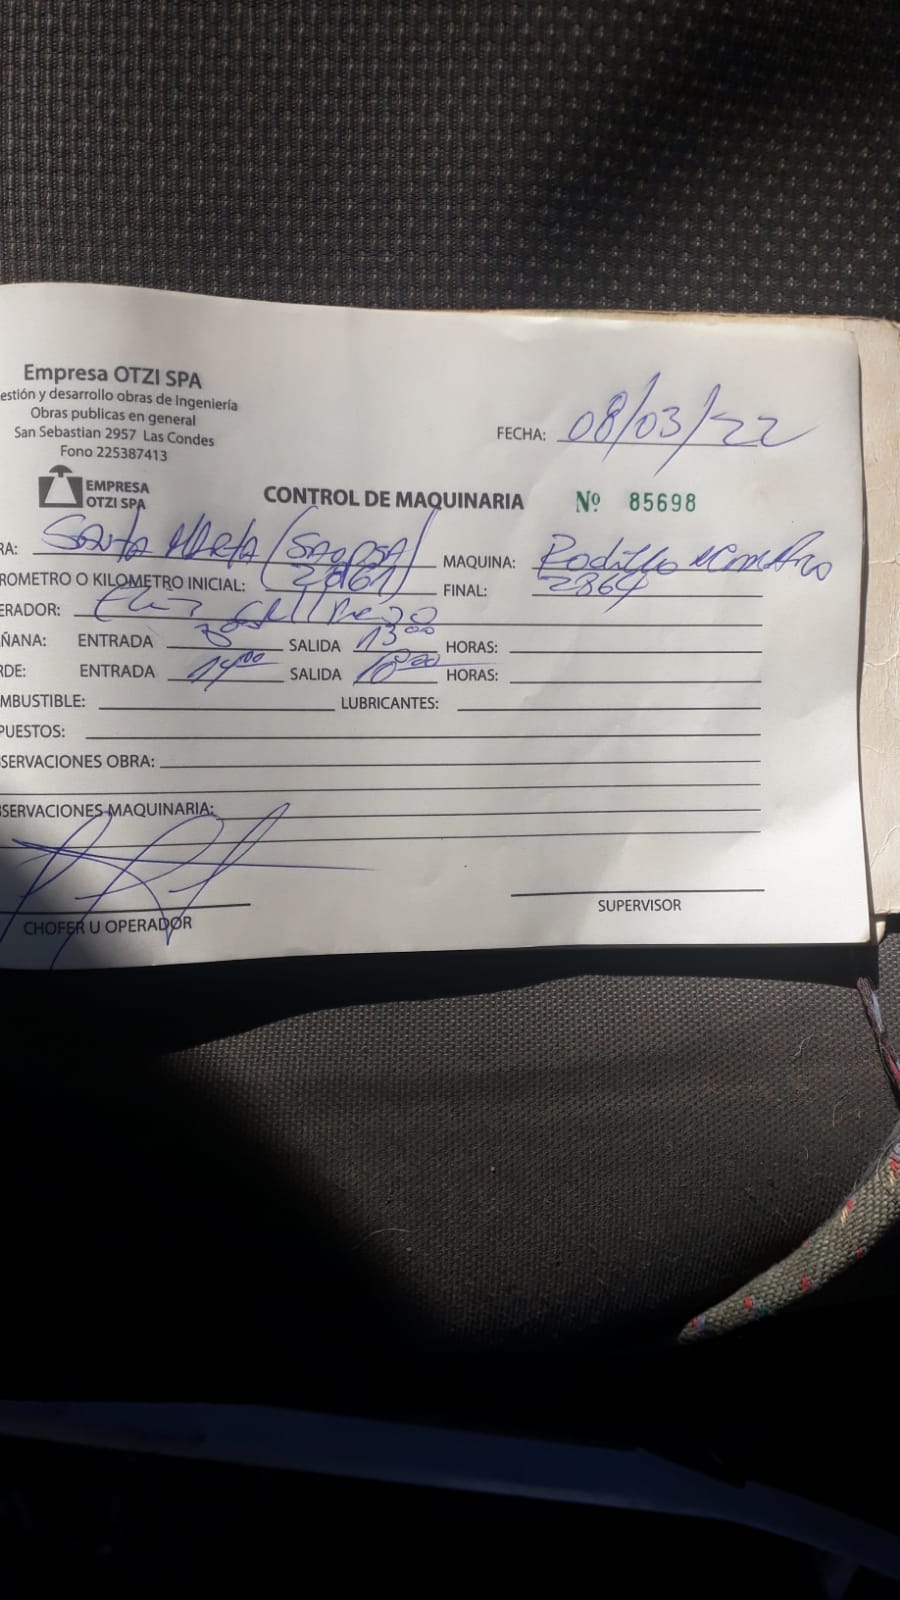 Empresa OTZI SPA
estión y desarrollo obras de Ingeniería
Obras publicas en general
San Sebastian 2957 Las Condes
Fono 225387413
FECHA: 08/03/22
EMPRESA
OTZI SPA
CONTROL DE MAQUINARIA Nº 85698
RA: Santa Marta MAQUINA: Rodillo
ROMETRO O KILOMETRO INICIAL: 2861 FINAL: 2864
ERADOR:
ÑANA: ENTRADA 8 SALIDA 13 00 HORAS:
RDE: ENTRADA 14 00 SALIDA 18 00 HORAS:
MBUSTIBLE: LUBRICANTES:
PUESTOS:
SERVACIONES OBRA:
SERVACIONES MAQUINARIA:
CHOFER U OPERADOR
SUPERVISOR